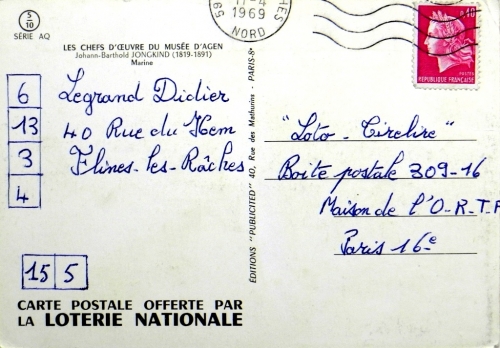 5
10
SÉRIE AQ
LES CHEFS D'ŒUVRE DU MUSÉE D'AGEN
Johann-Barthold JONGKIND (1819-1891)
Marine
6
13
3
4
Legrand Didier
40 Rue du Hem
Flines-les-Râches
15 5
CARTE POSTALE OFFERTE PAR
LA LOTERIE NATIONALE
ÉDITIONS "PUBLICITED" 40, Rue des Mathurins - PARIS-8e
59
11-4
1969
NORD
HES
0,40
POSTES
REPUBLIQUE FRANÇAISE
"Loto-Tirelire"
Boite postale 309-16
Maison de l'O-R-T-F
Paris 16e